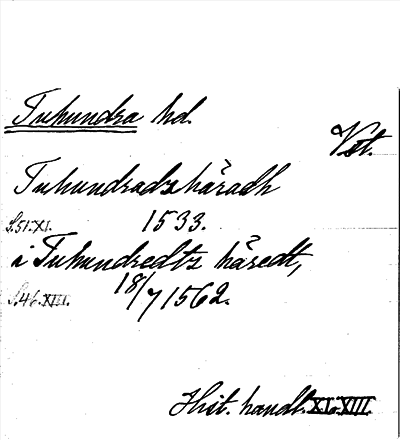 Tuhundra hd.
Vst.
Tuhundradzháradh
S.51.XI. 1533.
i Tuhundredtz háredt,
S.46.XIII. 18/7 1562.
Hist. handl. XI. XIII.